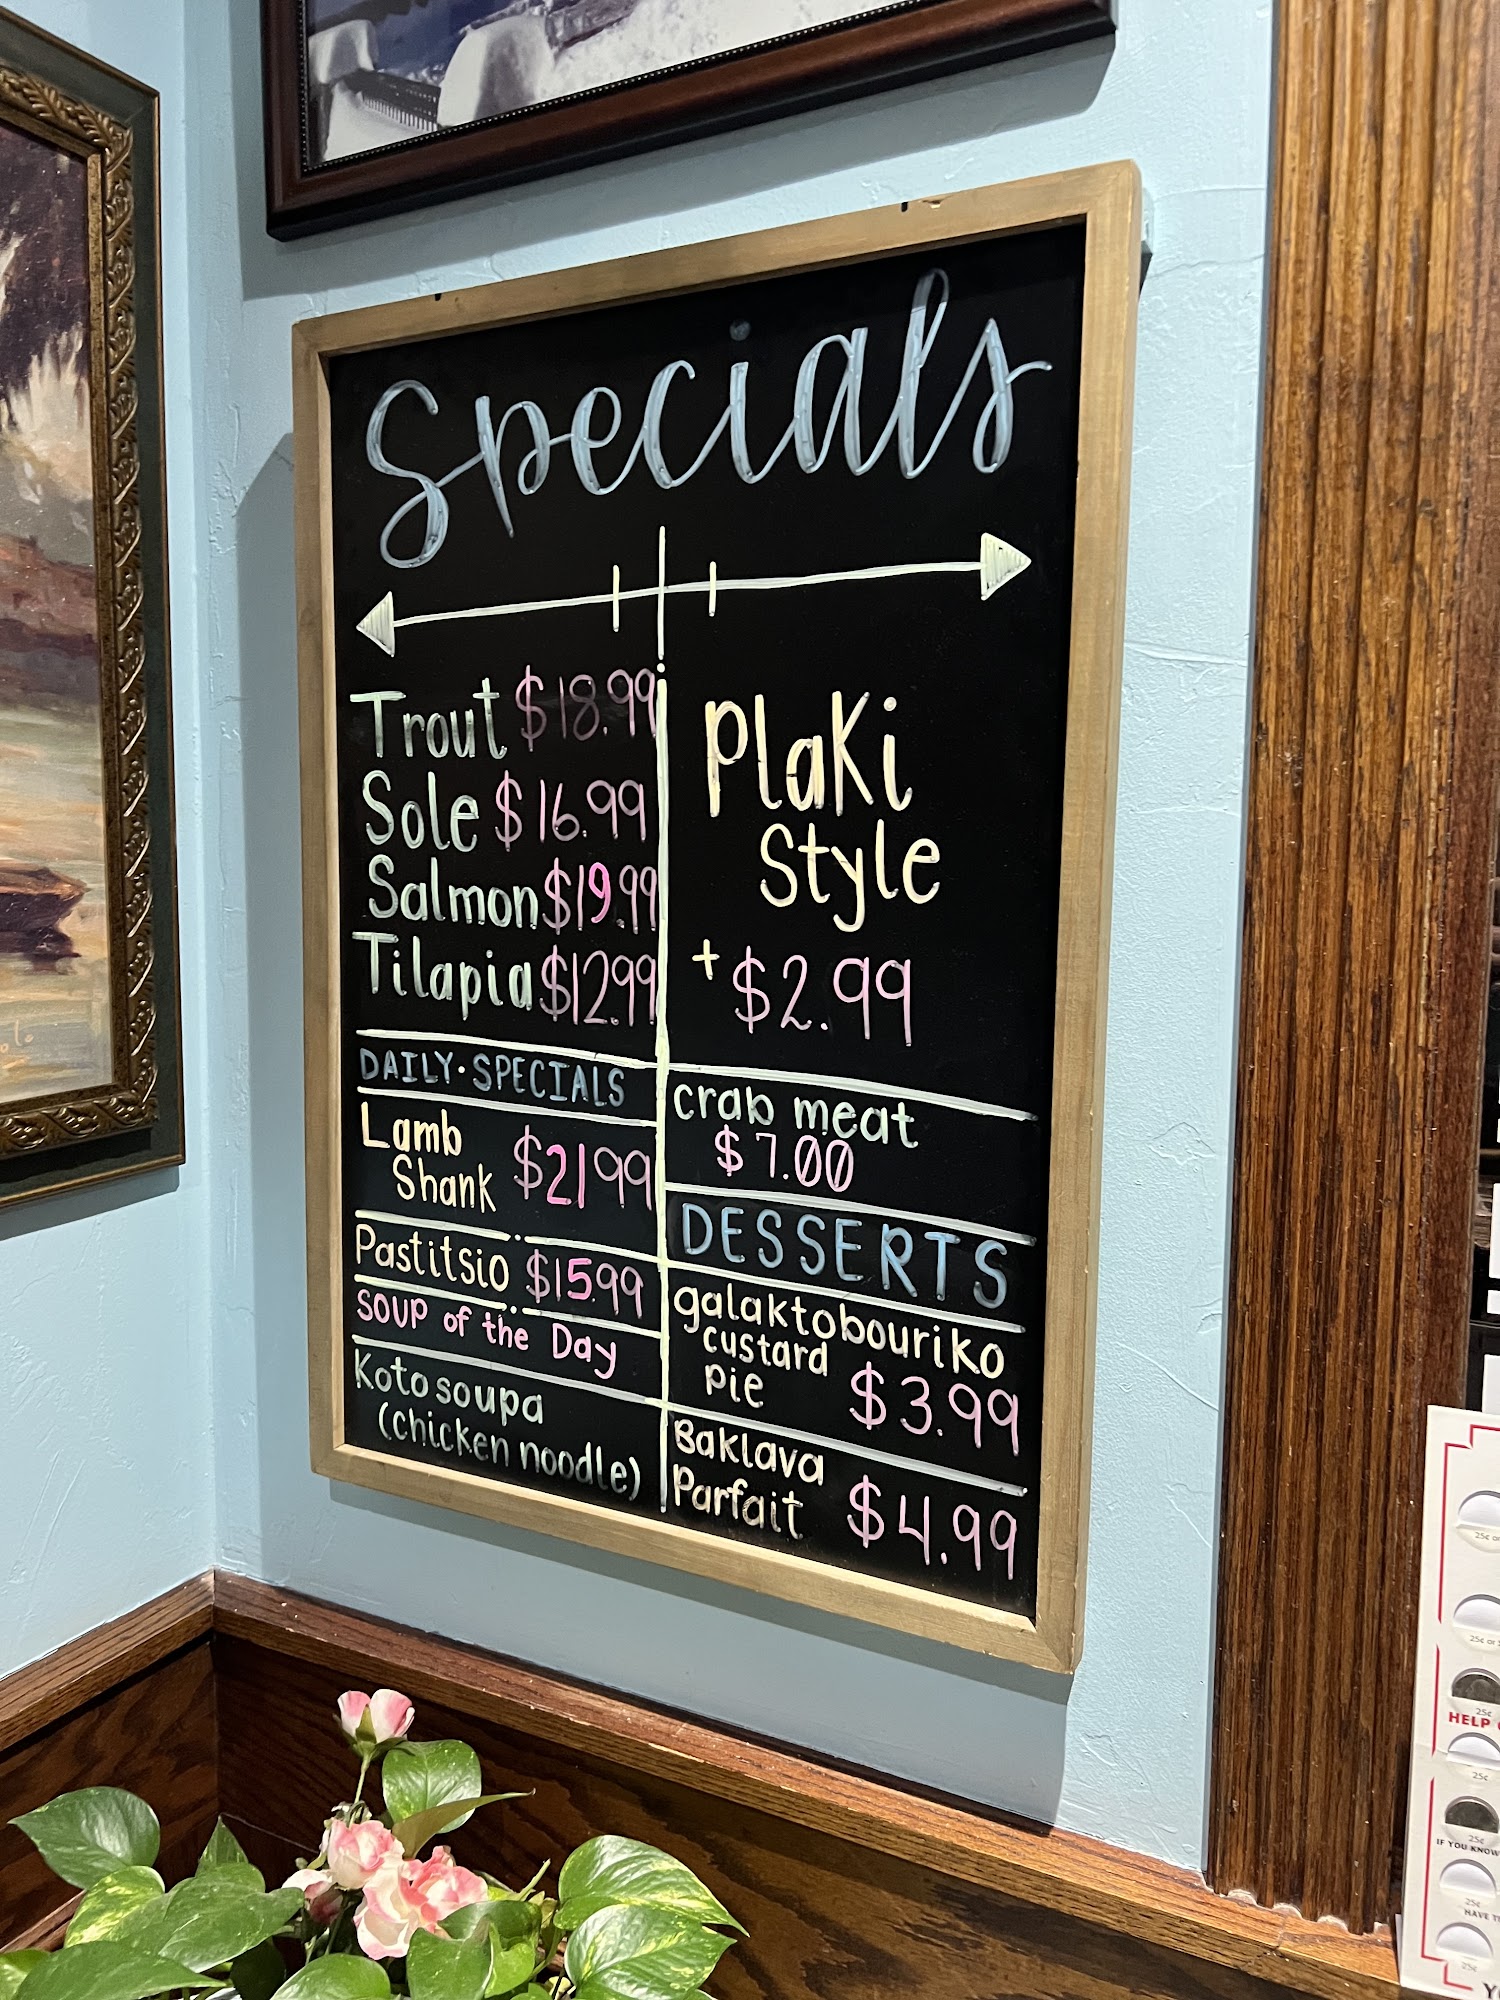 Specials
Trout $18.99
Sole $16.99
Salmon $19.99
Tilapia $12.99
PlaKi
Style
+$2.99
DAILY·SPECIALS
Lamb
Shank $21.99
Pastitsio $15.99
SOUP of the Day
Kotosoupa
(chicken noodle)
crab meat
$7.00
DESSERTS
galaktobouriko
custard
pie $3.99
Baklava
Parfait $4.99
25¢
25¢
25¢
HELP
25¢
25¢
IF YOU KNOW
25¢
HAVE
25¢